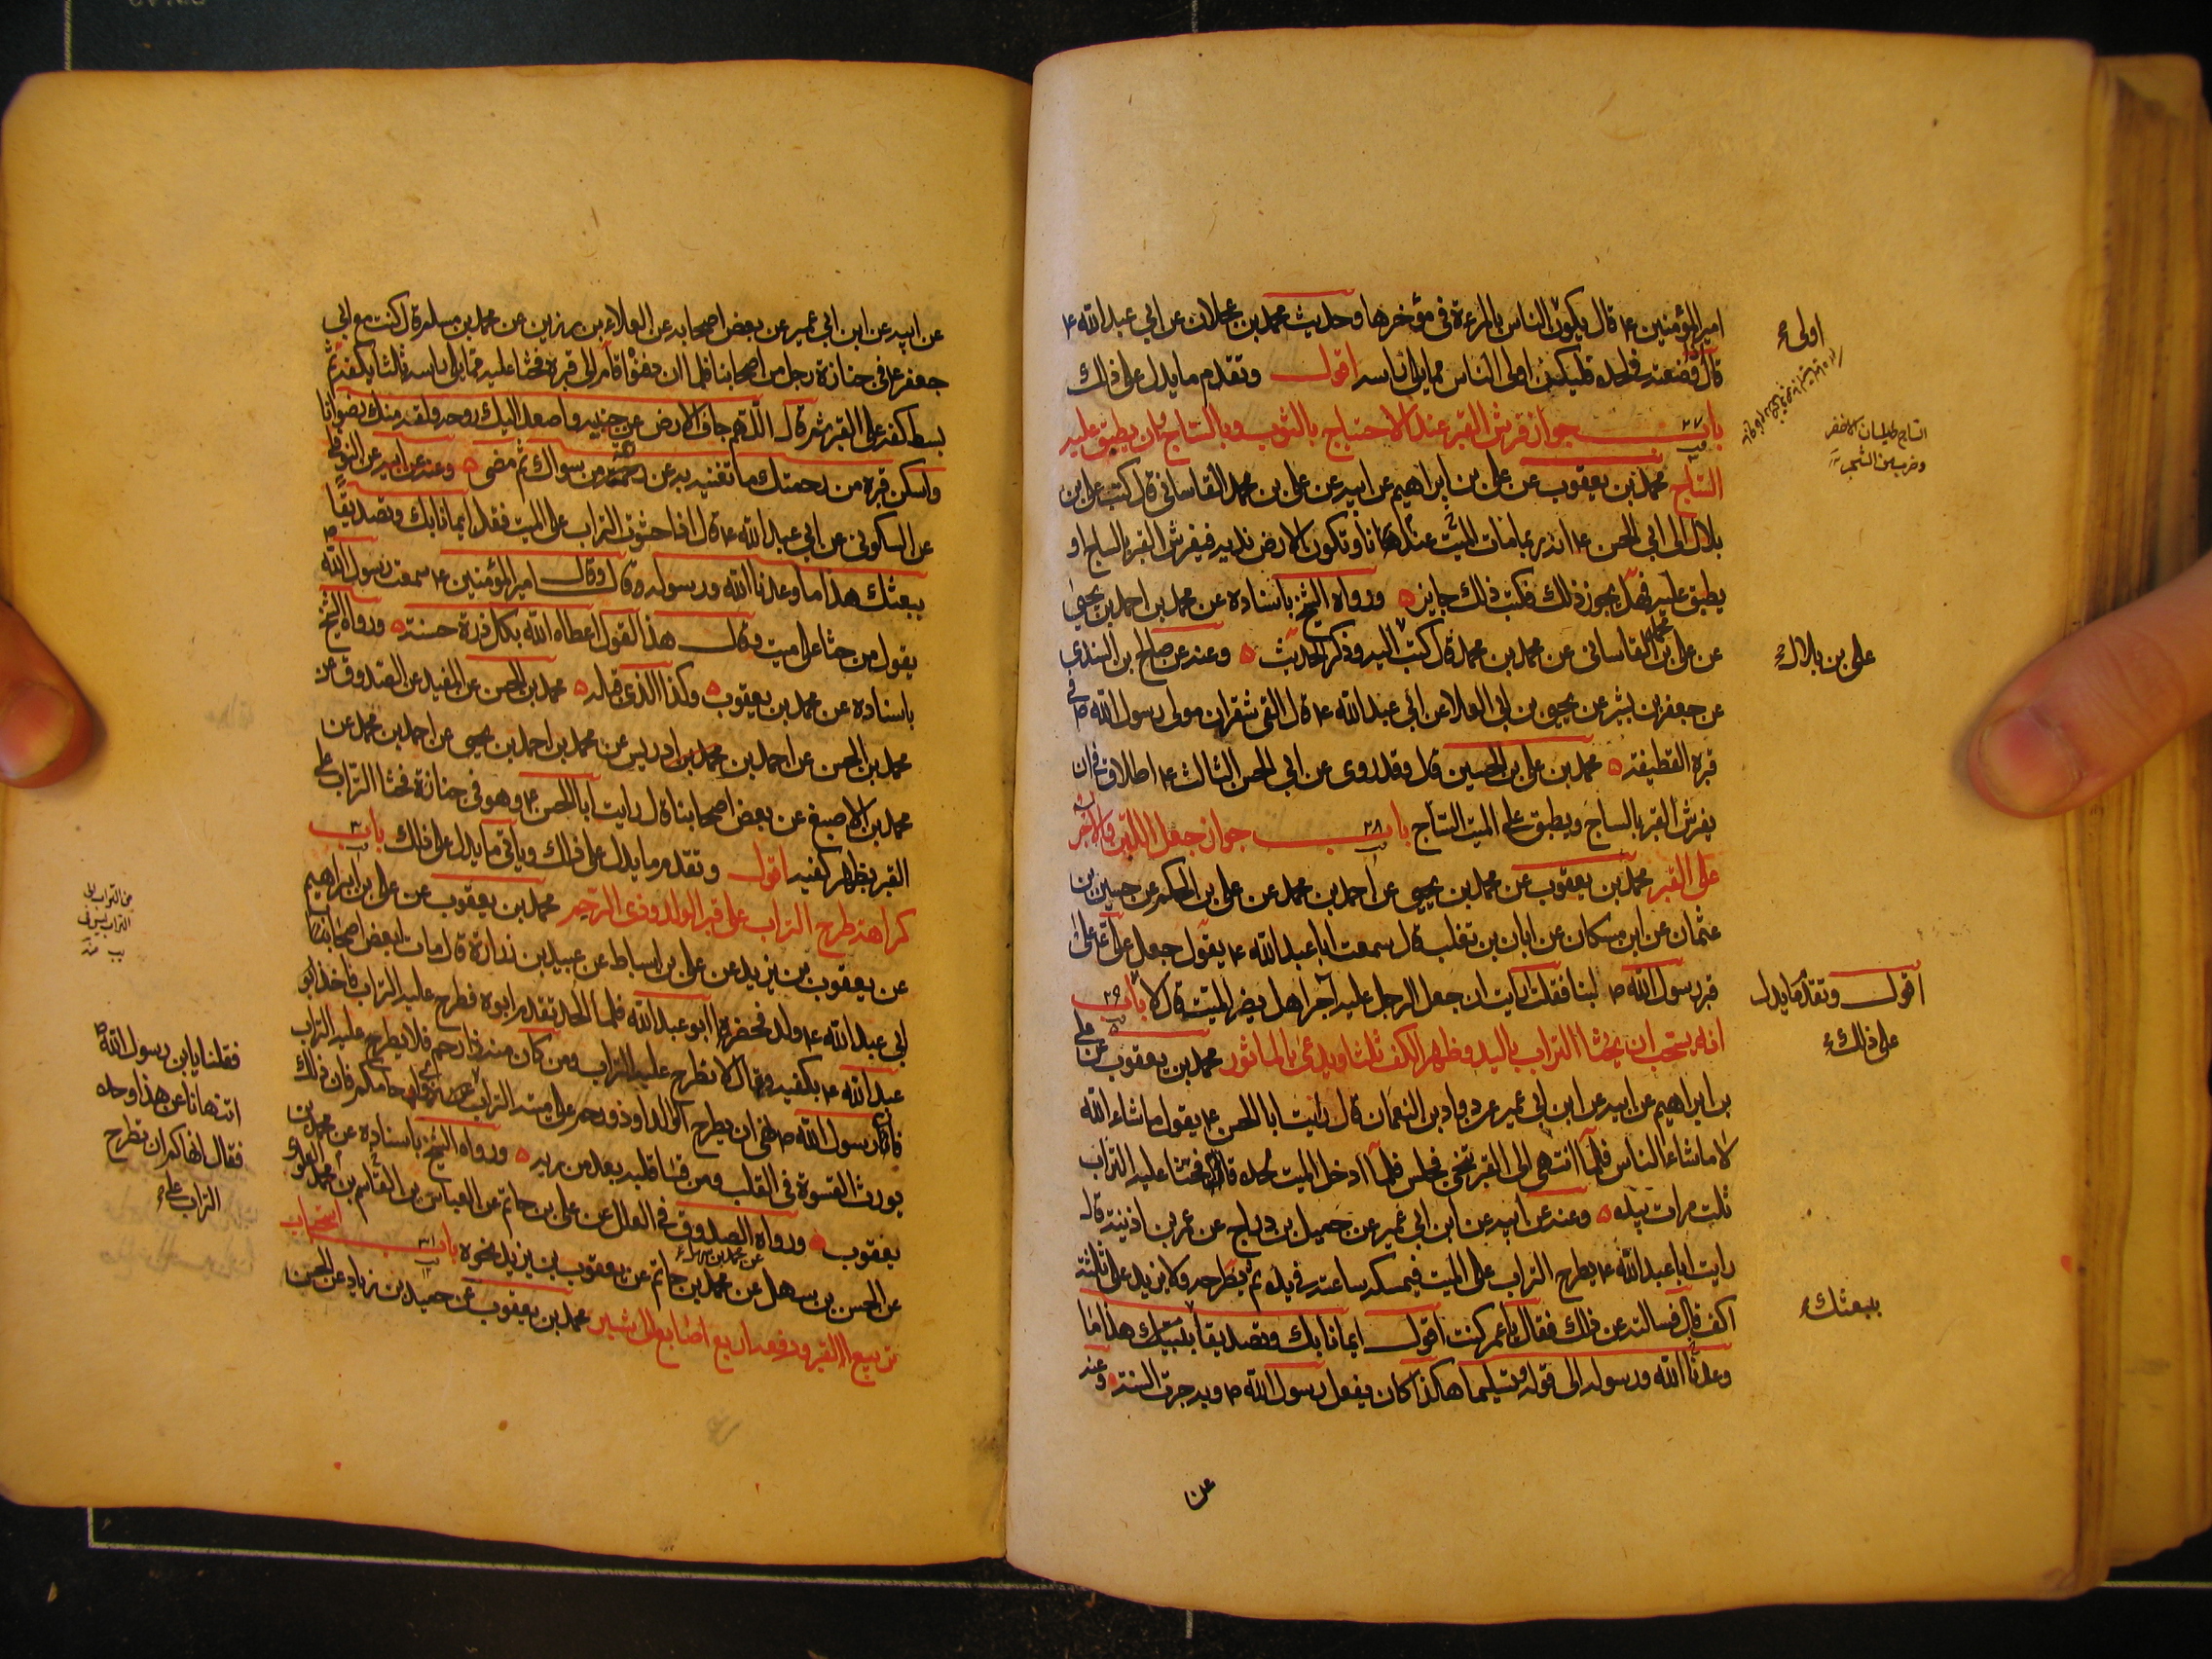 امير المؤمنين ع قال يكون اولى الناس بالمرءة في مؤخرها وحديث محمد بن عجلان عن ابي عبد الله ع
قال فاذا وضعته في لحده فليكن اولى الناس مما يلي راسه اقول وتقدم ما يدل على ذلك
باب ٢٧ جواز فرش القبر عند الاحتياج بالثوب وبالساج وان يطبق عليه
الساج محمد بن يعقوب عن علي بن ابراهيم عن ابيه عن علي بن محمد القاساني قال كتب علي بن
بلال الى ابي الحسن ع انه ربما مات الميت عندنا وتكون الارض ندية فيفرش القبر بالساج او
يطبق عليه فهل يجوز ذلك فكتب ذلك جايز ورواه الشيخ باسناده عن محمد بن احمد بن يحيى
عن علي بن محمد القاساني عن محمد بن محمد قال كتب اليه وذكر الحديث وعنه عن صالح بن السندي
عن جعفر بن بشير عن يحيى بن ابي العلا عن ابي عبد الله ع قال القى شقران مولى رسول الله ص في
قبره القطيفة محمد بن علي بن الحسين قال وقد روى عن ابي الحسن الثالث ع اطلاق في ان
يفرش القبر بالساج ويطبق على الميت الساج باب ٢٨ جواز جعل اللبن والآجر
على القبر محمد بن يعقوب عن محمد بن يحيى عن احمد بن محمد عن علي بن الحكم عن حسين بن
عثمان عن ابن مسكان عن ابان بن تغلب قال سمعت ابا عبد الله ع يقول جعل علي ع على
قبر رسول الله ص لبنا فقلت ارايت ان جعل الرجل عليه آجرا هل يضر الميت قال لا باب ٢٩
انه يستحب ان يحثا التراب باليد وظهر الكف ثلثا ويدعى بالماثور محمد بن يعقوب عن علي
بن ابراهيم عن ابيه عن ابن ابي عمير عن داود بن النعمان قال رايت ابا الحسن ع يقول ما شاء الله
لا ما شاء الناس فلما انتهى الى القبر تنحى فجلس فلما ادخل الميت لحده قام فحثا عليه التراب
ثلث مرات بيده وعنه عن ابيه عن ابن ابي عمير عن جميل بن دراج عن عمر بن اذينة قال
رايت ابا عبد الله ع يطرح التراب على الميت فيمسكه ساعة في يده ثم يطرحه ولا يزيد على ثلثة
اكف قال فسالته عن ذلك فقال يا عمر كنت اقول ايمانا بك وتصديقا هذا ما
وعدنا الله ورسوله الى قوله وتسليما هكذا كان يفعل رسول الله ص وبه جرت السنة وعنه
عن
اولى
الساج طيلسان الاخضر
وضرب من الشجر
علي بن بلال
اقول وتقدم ما يدل
على ذلك
ببعثك
عن ابيه عن ابن ابي عمير عن بعض اصحابه عن العلاء بن رزين عن محمد بن مسلم قال كنت مع ابي
جعفر ع في جنازة رجل من اصحابنا فلما ان دفنوه قام الى قبره فحثا عليه مما يلي راسه ثلثا بكفه ثم
بسط كفه على القبر ثم قال اللهم جاف الارض عن جنبيه واصعد اليك روحه ولقه منك رضوانا
واسكن قبره من رحمتك ما تغنيه به عن رحمة من سواك ثم مضى وعنه عن ابيه عن النوفلي
عن السكوني عن ابي عبد الله ع قال اذا حثوت التراب على الميت فقل ايمانا بك وتصديقا
ببعثك هذا ما وعدنا الله ورسوله قال وقال امير المؤمنين ع سمعت رسول الله ص
يقول من حثا على ميت وقال هذا القول اعطاه الله بكل ذرة حسنة ورواه الشيخ
باسناده عن محمد بن يعقوب وكذا الذي قبله محمد بن الحسن عن المفيد عن الصدوق عن
محمد بن الحسن عن احمد بن محمد بن ادريس عن محمد بن احمد بن يحيى عن احمد بن محمد عن
محمد بن الاصبغ عن بعض اصحابنا قال رايت ابا الحسن ع وهو في جنازة فحثا التراب على
القبر بظهر كفيه اقول وتقدم ما يدل على ذلك وياتي ما يدل على ذلك باب ٣٠
كراهة طرح التراب على قبر الولد وذي الرحم محمد بن يعقوب عن علي بن ابراهيم
عن يعقوب بن يزيد عن علي بن اسباط عن عبيد بن زرارة قال مات لبعض اصحاب
ابي عبد الله ع ولد فحضره ابو عبد الله فلما الحد تقدم ابوه فطرح عليه التراب فاخذ ابو
عبد الله ع بكفيه وقال لا تطرح عليه التراب ومن كان منه ذا رحم فلا يطرح عليه التراب
فان رسول الله ص نهى ان يطرح الوالد او ذو رحم على ميته التراب ارحامكم فان ذلك
يورث القسوة في القلب ومن قسا قلبه بعد من ربه ورواه الشيخ باسناده عن محمد بن
يعقوب ورواه الصدوق في العلل عن علي بن حاتم عن العباس بن القاسم بن محمد العلوي
عن الحسن بن سهل عن محمد بن حاتم عن يعقوب بن يزيد نحوه باب ٣١ استحباب
تربيع القبر ورفعه اربع اصابع الى شبر محمد بن يعقوب عن حميد بن زياد عن الحسن
فقلنا يابن رسول الله ص
اتنهانا عن هذا وحده
فقال انهاكم ان تطرح
التراب على